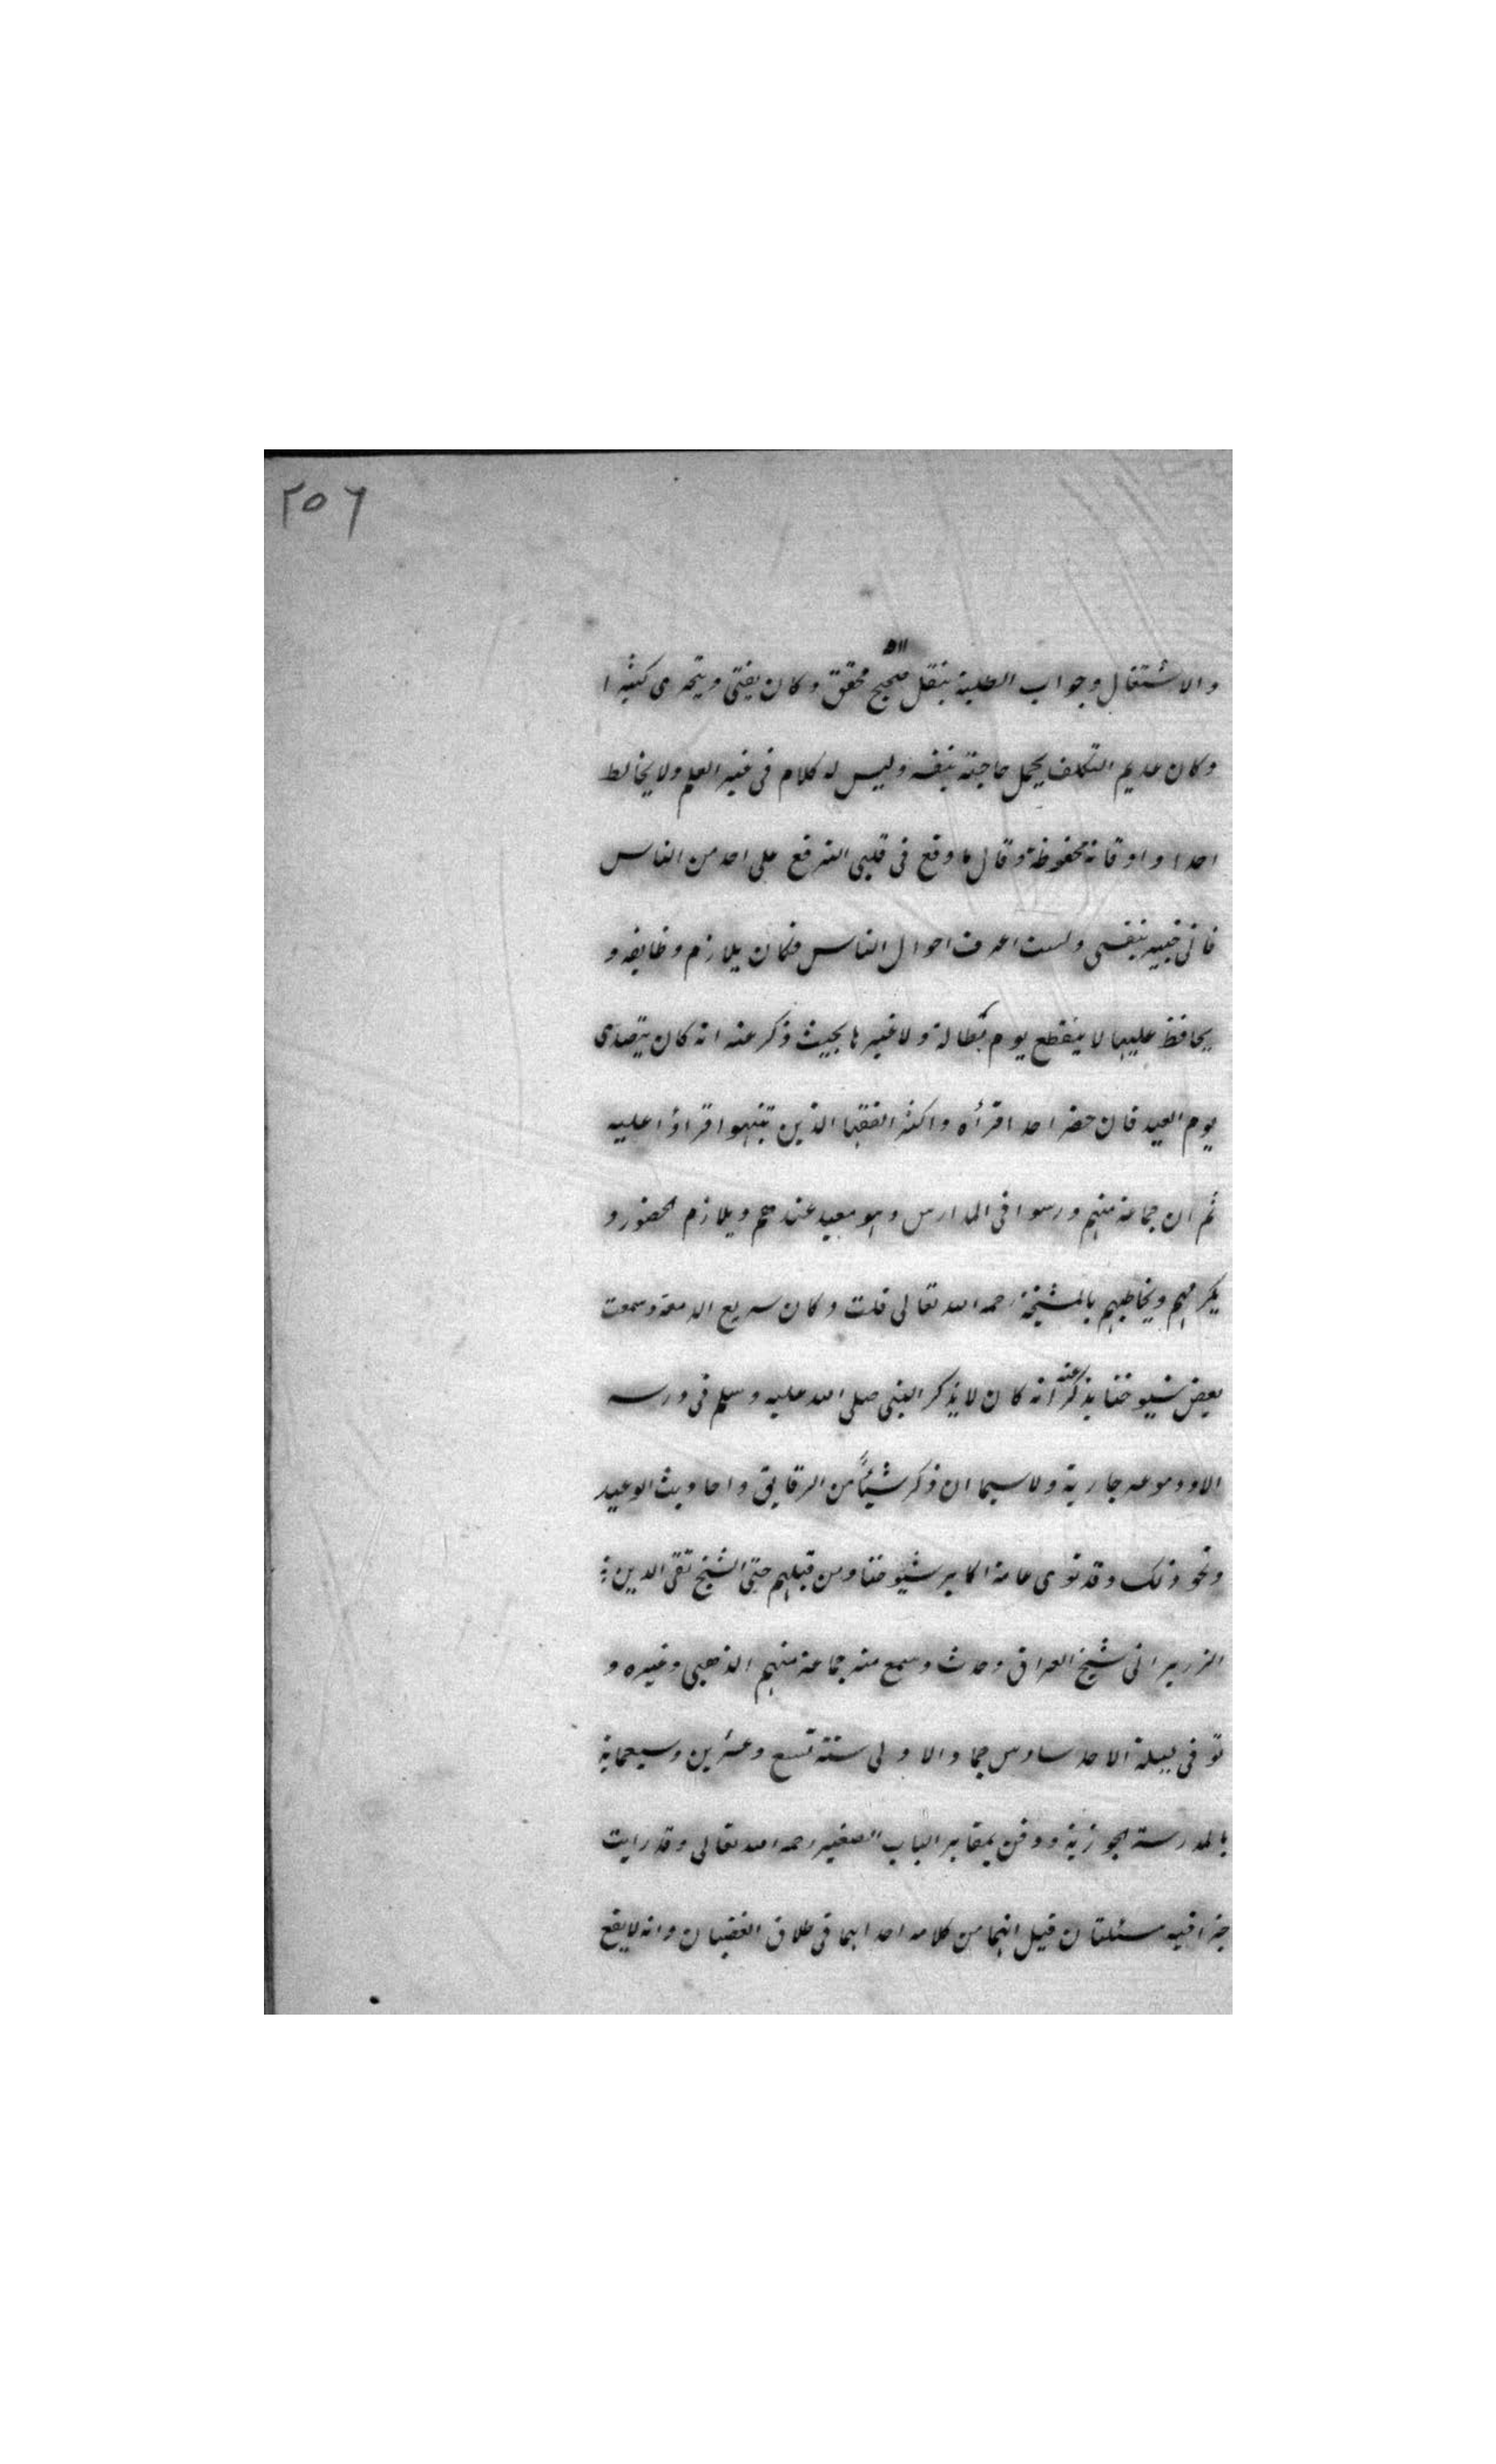 ٢٥٦
والاشتغال وجواب الطلبة بنقل صحيح محقق وكان يفتى ويتحرى كثيرا
وكان عديم التكلف يحمل حاجته بنفسه وليس له كلام فى غير العلم ولا يخالط
احدا واوقاته محفوظة وقال ما وقع فى قلبى الترفع على احد من الناس
فانى خبير بنفسى ولست اعرف احوال الناس فكان يلازم وظايفه و
يحافظ عليها لا ينقطع يوم بطالة ولا غيرها بحيث ذكر عنه انه كان يتصدى
يوم العيد فان حضر احد اقرأه واكثر الفقها الذين تنبهوا قراؤا عليه
ثم ان جماعة منهم درسوا فى المدارس وهو معيد عندهم ويلازم الحضور و
يكرمهم ويخاطبهم بالمشيخة رحمه الله تعالى قلت وكان سريع الدمعة وسمعت
بعض شيوخنا يذكر عنه انه كان لا يذكر النبى صلى الله عليه وسلم فى درسه
الا ودموعه جارية ولا سيما ان ذكر شيئاً من الرقايق واحاديث الوعيد
ونحو ذلك وقد قرى عامة اكابر شيوخنا ومن قبلهم حتى الشيخ تقى الدين
الزريرانى شيخ العراق وحدث وسمع منه جماعة منهم الذهبى وغيره و
توفى ليلة الاحد سادس جماد الاولى سنة تسع وعشرين وسبعماية
بالمدرسة الجوزية ودفن بمقابر الباب الصغير رحمه الله تعالى وقد رايت
جزا فيه مسئلتان قيل انهما من كلامه احداهما فى طلاق الغضبان وانه لا يقع